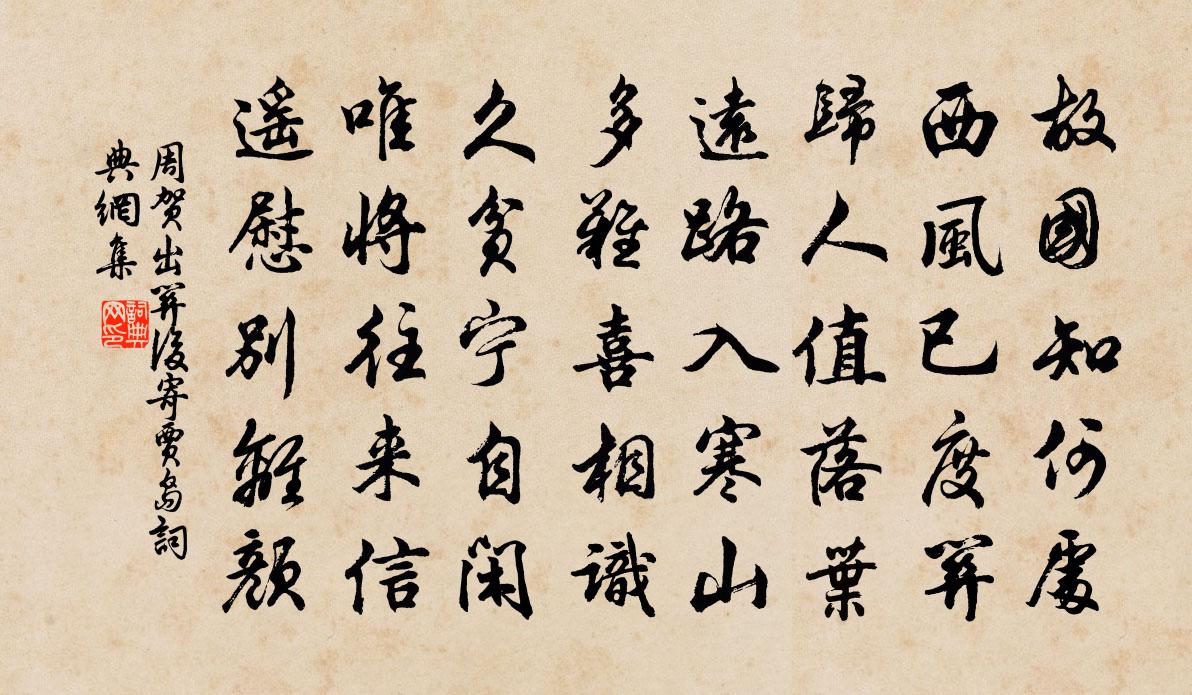 故國知何處
西風已度關
歸人值落葉
遠路入寒山
多難喜相識
久貧宁自閑
唯將往來信
遥慰別離顏
周賀出關後寄賈島詞
典網集
詞典
网印